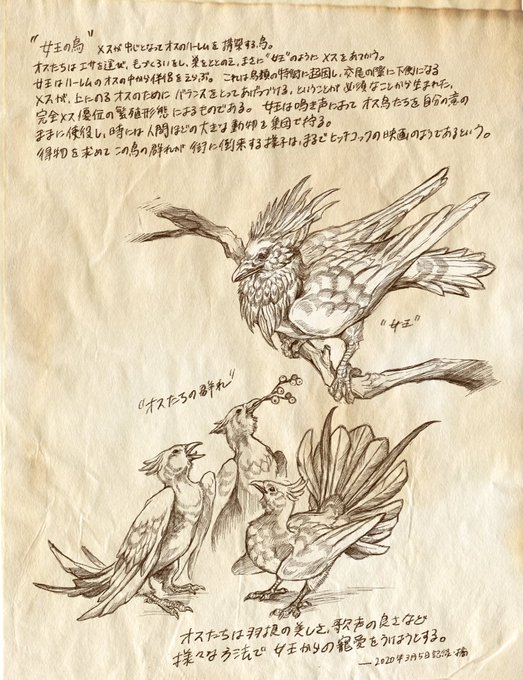 "女王の鳥" メスが中心となってオスのハーレムを構築する鳥。
オスたちはエサを運び、毛づくろいをし、巣をととのえ、まさに"女王"のようにメスをあつかう。
女王はハーレムのオスの中から伴侶をえらぶ。これは鳥類の特徴に起因し、交尾の際に下側になる
メスが、上にのるオスのためにバランスをとってあげる、ということが必須なことから生まれた、
完全メス優位の繁殖形態によるものである。女王は鳴き声によってオス鳥たちを自分の意の
ままに使役し、時には人間ほどの大きな動物を集団で狩る。
得物を求めてこの鳥の群れが街に倒来する様子は、まるでヒッチコックの映画のようであるという。
"女王"
"オスたちの群れ"
オスたちは羽根の美しさ、歌声の良さなど
様々な方法で女王からの寵愛をうけようとする。
—2020年3月5日